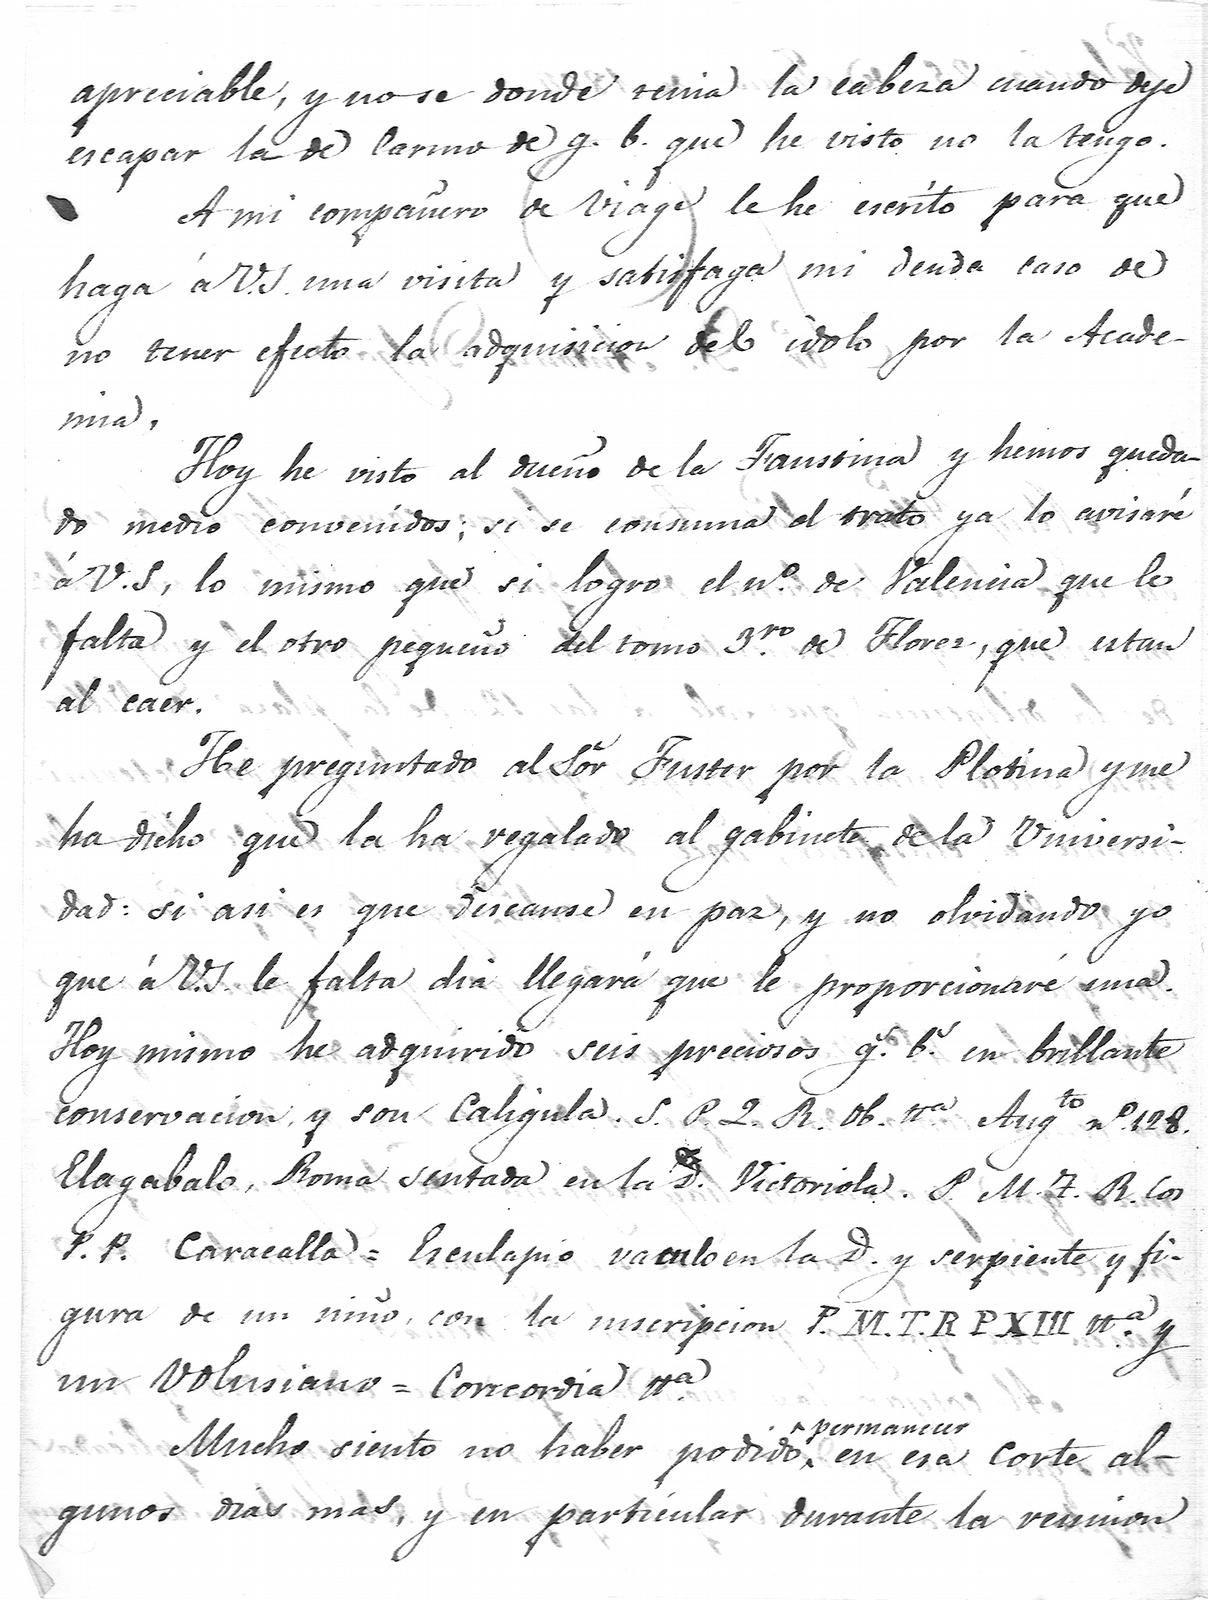 apreciable, y no se donde tenia la cabeza cuando deje
escapar la de Carmo de g. b. que he visto no la tengo.
A mi compañero de viage le he escrito para que
haga á V.S. una visita y satisfaga mi deuda caso de
no tener efecto la adquisicion del idolo por la Acade-
mia.
Hoy he visto al dueño de la Faustina y hemos queda-
do medio convenidos; si se consuma el trato ya lo avisaré
á V.S, lo mismo que si logro el nº. de Valencia que le
falta y el otro pequeño del tomo 3.ro de Florez, que estan
al caer.
He preguntado al Sor Fuster por la Plotina y me
ha dicho que la ha regalado al gabinete de la Universi-
dad: si asi es que descanse en paz, y no olvidando yo
que á V.S. le falta dia llegará que le proporcionaré una.
Hoy mismo he adquirido seis preciosos g.s b.s en brillante
conservacion, y son Caligula. S. P. Q. R. Ob. nª Augto nº. 128.
Elagabalo, Roma sentada en la D. Victoriola. P. M. T. R. Cos
P. P. Caracalla = Esculapio vaculo en la D. y serpiente y fi-
gura de un niño, con la inscripcion P. M. T. R P XIII nª. y
un Volusiano = Concordia nª
Mucho siento no haber podido permanecer en esa Corte al-
gunos dias mas, y en particular durante la reunion